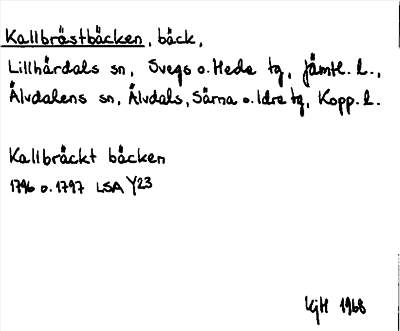 Kallbråstbäcken, bäck,
Lillhärdals sn, Svegs o. Hede tg, Jämtl. l.,
Älvdalens sn, Älvdals, Särna o. Idre tg, Kopp. l.
Kallbräckt bäcken
1796 o. 1797 LSA Y23
KjH 1968